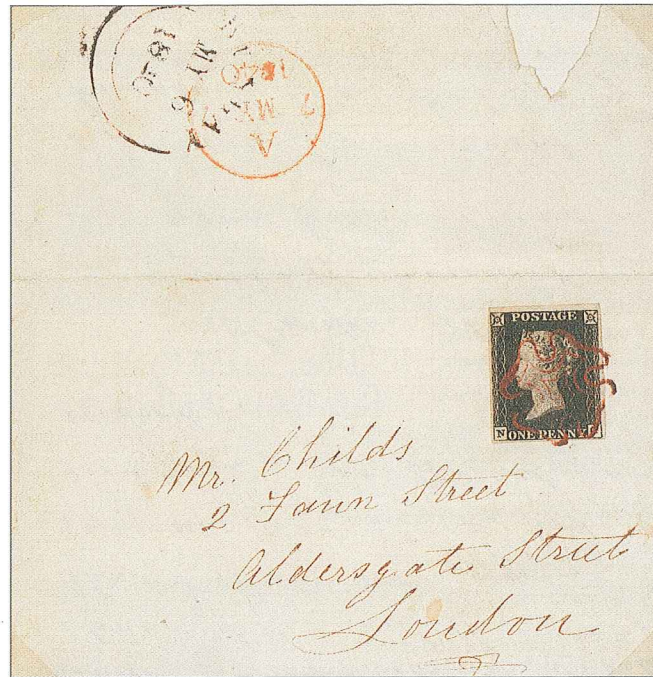 MY 6
1840
A
7 MY 7
1840
POSTAGE
N ONE PENNY
Mr. Childs
2 Fann Street
Aldersgate Street
London